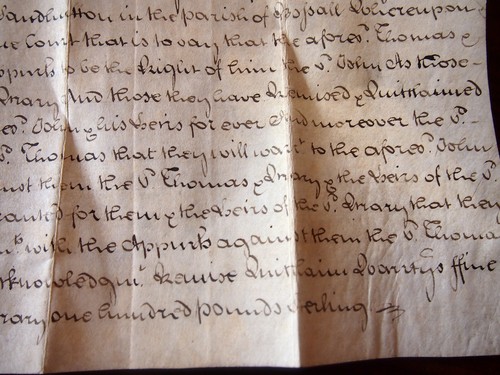 Sandhutton in the parish of Whereupon
the Court that is to say that the afores.d Thomas &
appurts to be the Right of him the s.d John As those
Mary And those they have Remised & Quitclaimed
John & his Heirs for ever And moreover the s.d
s.d Thomas that they will warr.t to the afores.d John
against them the s.d Thomas & Mary & the Heirs of the s.d
for them & the Heirs of the s.d Mary that they
with the Appurts against them the s.d Thomas
Remise Quitclaim Warranty ffine
Mary one hundred pounds sterling